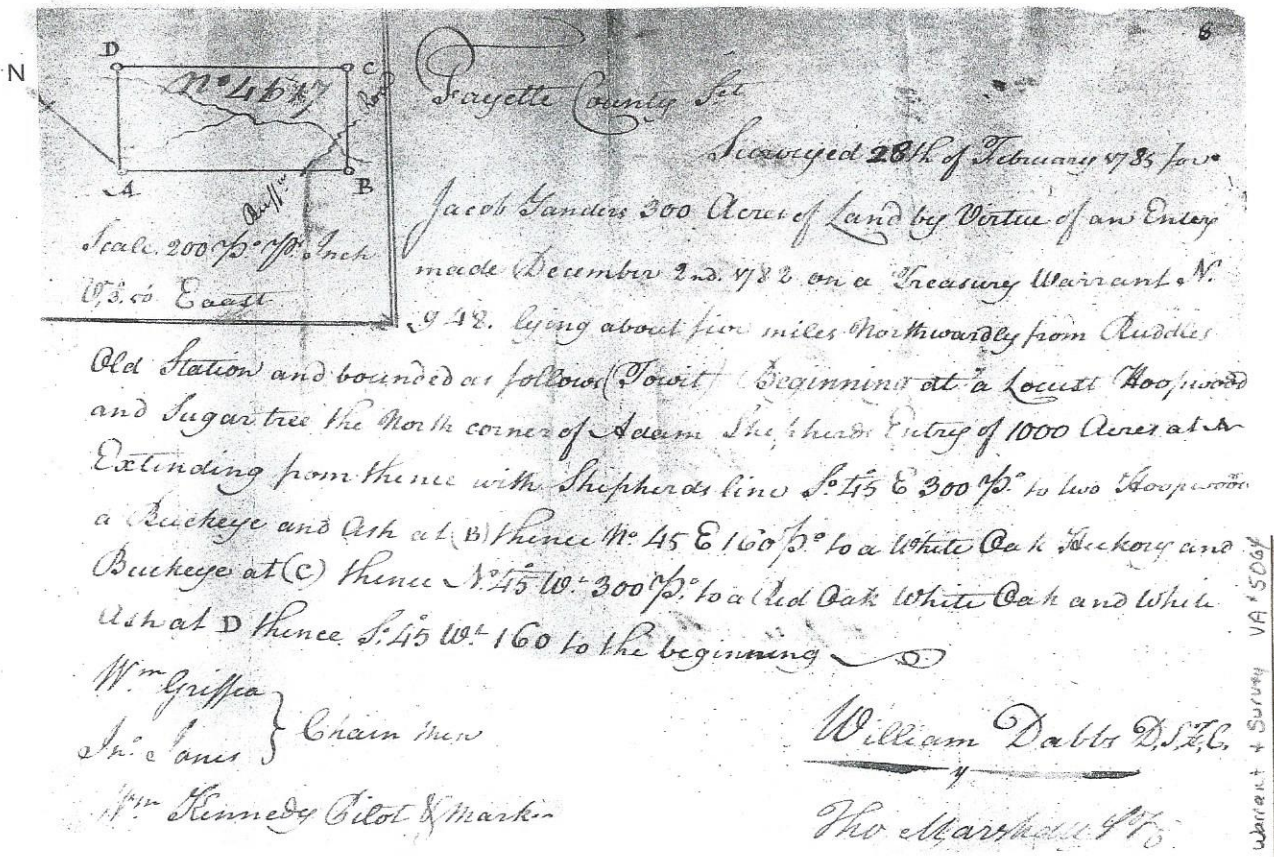 8
N
D
C
Nº 4547
Road
A
B
Scale. 200 Pº Pr. Inch
Vª 3. 50 Eaast
Fayette County Sct
Surveyed 28th of February 1785 for
Jacob Sanders 300 Acres of Land by Virtue of an Entry
made December 2nd. 1782 on a Treasury Warrant N.
948. lying about five miles Northwardly from Ruddles
Old Station and bounded as follows (Towit) Beginning at a Locust Hoopwood
and Sugartree the North corner of Adam Shepherds Entry of 1000 Acres at A
Extending from thence with Shepherds line Sº 45 E 300 Pº to two Hoopwoods
a Buckeye and Ash at (B) thence Nº 45 E 160 Pº to a White Oak Hickory and
Buckeye at (C) thence Nº 45 Wt 300 Pº to a Red Oak White Oak and White
Ash at D thence Sº 45 Wt 160 to the beginning
Wm Griffin
Jnº Jones
Chain Men
Wm Kennedy Pilot & Marker
William Dabbs D.S.F.C.
Tho Marshall S F C
Warrant + Survey VA # 5064